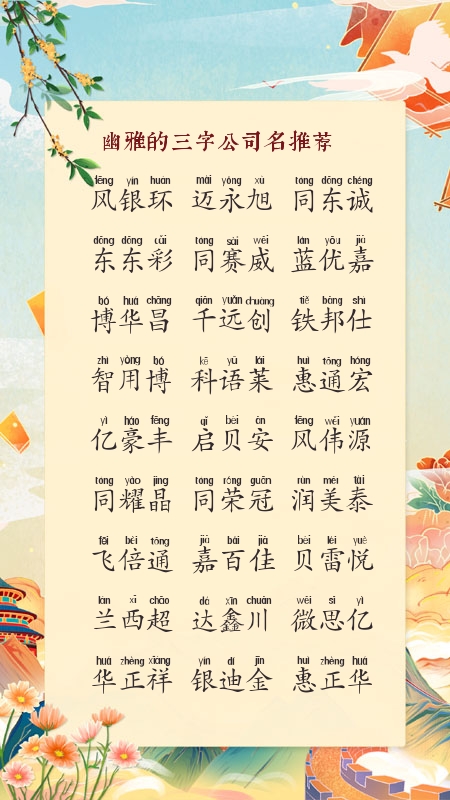 幽雅的三字公司名推荐
fēng yín huán mài yóng xù tóng dōng chéng
风银环 迈永旭 同东诚
dōng dōng cǎi tóng sài wēi lán yōu jiā
东东彩 同赛威 蓝优嘉
bó huá chāng qiān yuǎn chuàng tiě bāng shì
博华昌 千远创 铁邦仕
zhì yòng bó kē yǔ lái huì tōng hóng
智用博 科语莱 惠通宏
yì háo fēng qǐ bèi ān fēng wěi yuán
亿豪丰 启贝安 风伟源
tóng yào jīng tóng róng guān rùn měi tài
同耀晶 同荣冠 润美泰
fēi bèi tōng jiā bǎi jiā bèi léi yuè
飞倍通 嘉百佳 贝雷悦
lán xī chāo dá xīn chuān wēi sī yì
兰西超 达鑫川 微思亿
huá zhèng xiáng yín dí jīn huì zhèng huá
华正祥 银迪金 惠正华